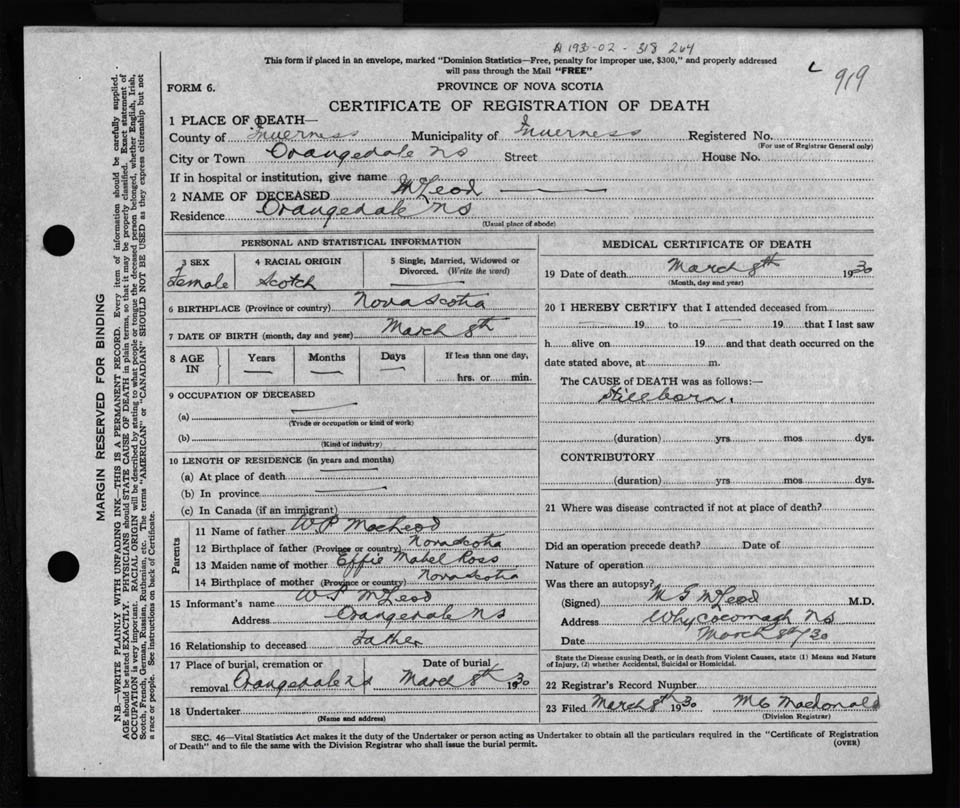 A 1930-02-318 264
This form if placed in an envelope, marked "Dominion Statistics—Free, penalty for improper use, $300," and properly addressed
will pass through the Mail "FREE"
919
FORM 6.
PROVINCE OF NOVA SCOTIA
CERTIFICATE OF REGISTRATION OF DEATH
1 PLACE OF DEATH—
County of Inverness Municipality of Inverness Registered No.
(For use of Registrar General only)
City or Town Orangedale NS Street House No.
If in hospital or institution, give name
2 NAME OF DECEASED McLeod
Residence Orangedale NS
(Usual place of abode)
PERSONAL AND STATISTICAL INFORMATION
3 SEX 4 RACIAL ORIGIN 5 Single, Married, Widowed or
Divorced. (Write the word)
Female Scotch
6 BIRTHPLACE (Province or country) Nova Scotia
7 DATE OF BIRTH (month, day and year) March 8th
8 AGE IN Years Months Days If less than one day,
hrs. or min.
9 OCCUPATION OF DECEASED
(a)
(Trade or occupation or kind of work)
(b)
(Kind of industry)
10 LENGTH OF RESIDENCE (in years and months)
(a) At place of death
(b) In province
(c) In Canada (if an immigrant)
Parents
11 Name of father W P MacLeod
12 Birthplace of father (Province or country) Nova Scotia
13 Maiden name of mother Effie Mabel Ross
14 Birthplace of mother (Province or country) Nova Scotia
15 Informant's name W P McLeod
Address Orangedale NS
16 Relationship to deceased Father
17 Place of burial, cremation or Date of burial
removal Orangedale NS March 8th 1930
18 Undertaker
(Name and address)
MEDICAL CERTIFICATE OF DEATH
19 Date of death March 8th 1930
(Month, day and year)
20 I HEREBY CERTIFY that I attended deceased from
19 to 19 that I last saw
h alive on 19 and that death occurred on the
date stated above, at m.
The CAUSE of DEATH was as follows:—
Stillborn.
(duration) yrs mos dys.
CONTRIBUTORY
(duration) yrs mos dys.
21 Where was disease contracted if not at place of death?
Did an operation precede death? Date of
Nature of operation
Was there an autopsy?
(Signed) M G McLeod M.D.
Address Whycocomagh NS
Date March 8th/30
State the Disease causing Death, or in death from Violent Causes, state (1) Means and Nature
of Injury, (2) whether Accidental, Suicidal or Homicidal.
22 Registrar's Record Number
23 Filed March 8th 1930 M C Macdonald
(Division Registrar)
SEC. 46—Vital Statistics Act makes it the duty of the Undertaker or person acting as Undertaker to obtain all the particulars required in the "Certificate of Registration
of Death" and to file the same with the Division Registrar who shall issue the burial permit.
(OVER)
MARGIN RESERVED FOR BINDING
N.B.—WRITE PLAINLY WITH UNFADING INK—THIS IS A PERMANENT RECORD. Every item of information should be carefully supplied.
AGE should be stated EXACTLY. PHYSICIANS should STATE CAUSE OF DEATH in plain terms, so that it may be properly classified. Exact statement of
OCCUPATION is very important. RACIAL ORIGIN will be described by stating to what people or tongue the deceased person belonged, whether English, Irish,
Scotch, French, German, Russian, Ruthenian, etc. The terms "AMERICAN" or "CANADIAN" SHOULD NOT BE USED as they express citizenship but not
a race or people. See instructions on back of Certificate.